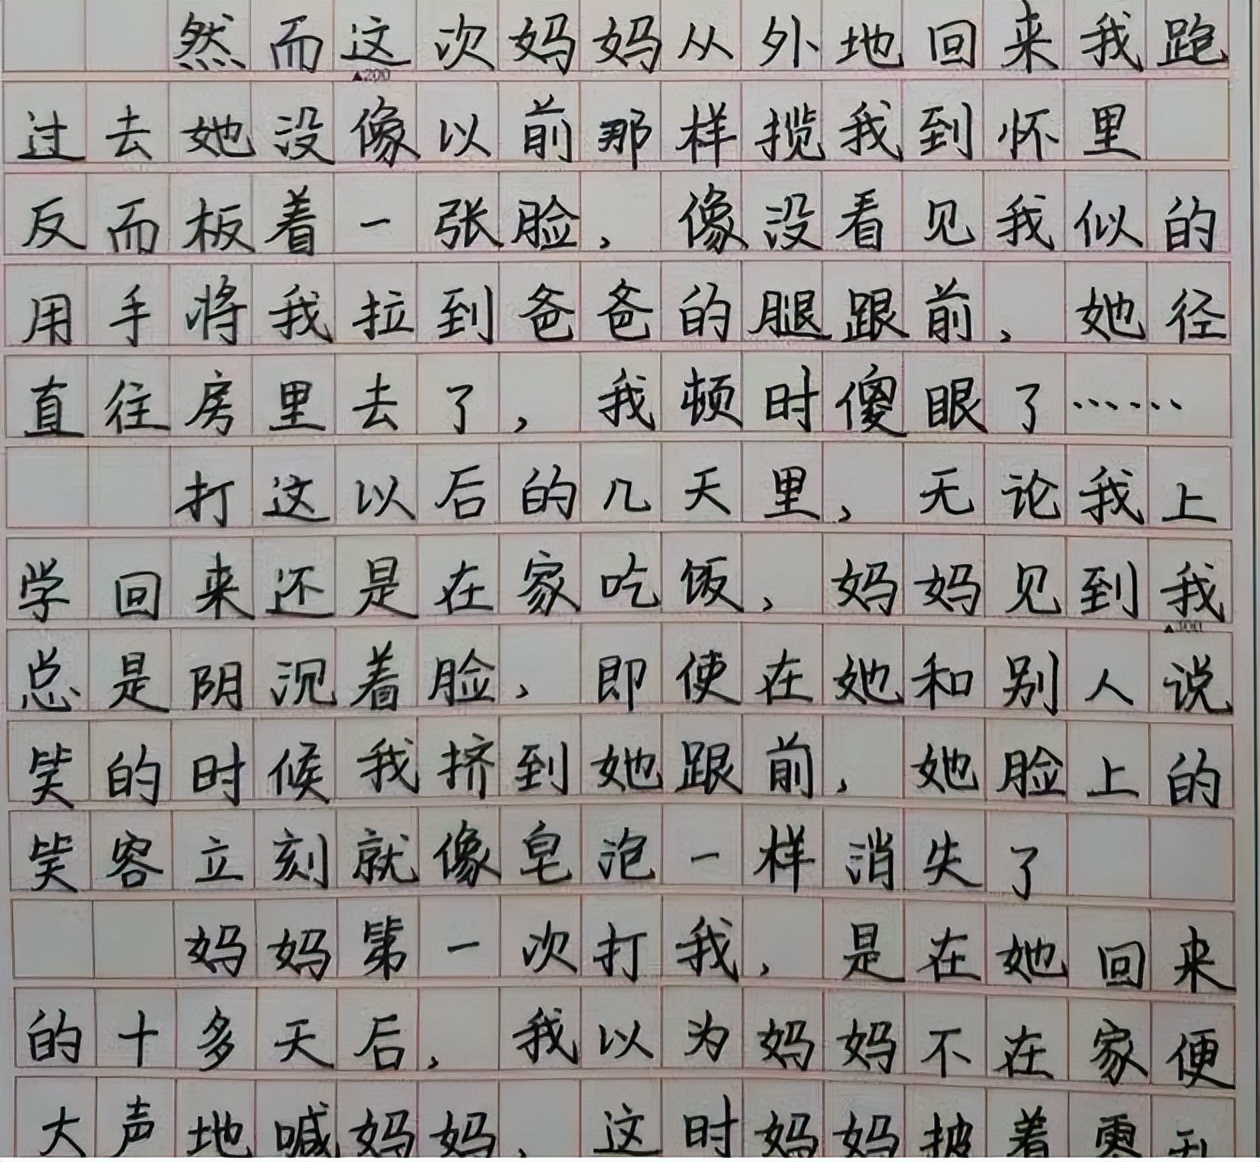 然而这次妈妈从外地回来我跑
▲200
过去她没像以前那样揽我到怀里
反而板着一张脸,像没看见我似的
用手将我拉到爸爸的腿跟前,她径
直往房里去了,我顿时傻眼了……
打这以后的几天里,无论我上
学回来还是在家吃饭,妈妈见到我
▲300
总是阴沉着脸,即使在她和别人说
笑的时候我挤到她跟前,她脸上的
笑容立刻就像皂泡一样消失了
妈妈第一次打我,是在她回来
的十多天后,我以为妈妈不在家便
大声地喊妈妈,这时妈妈披着